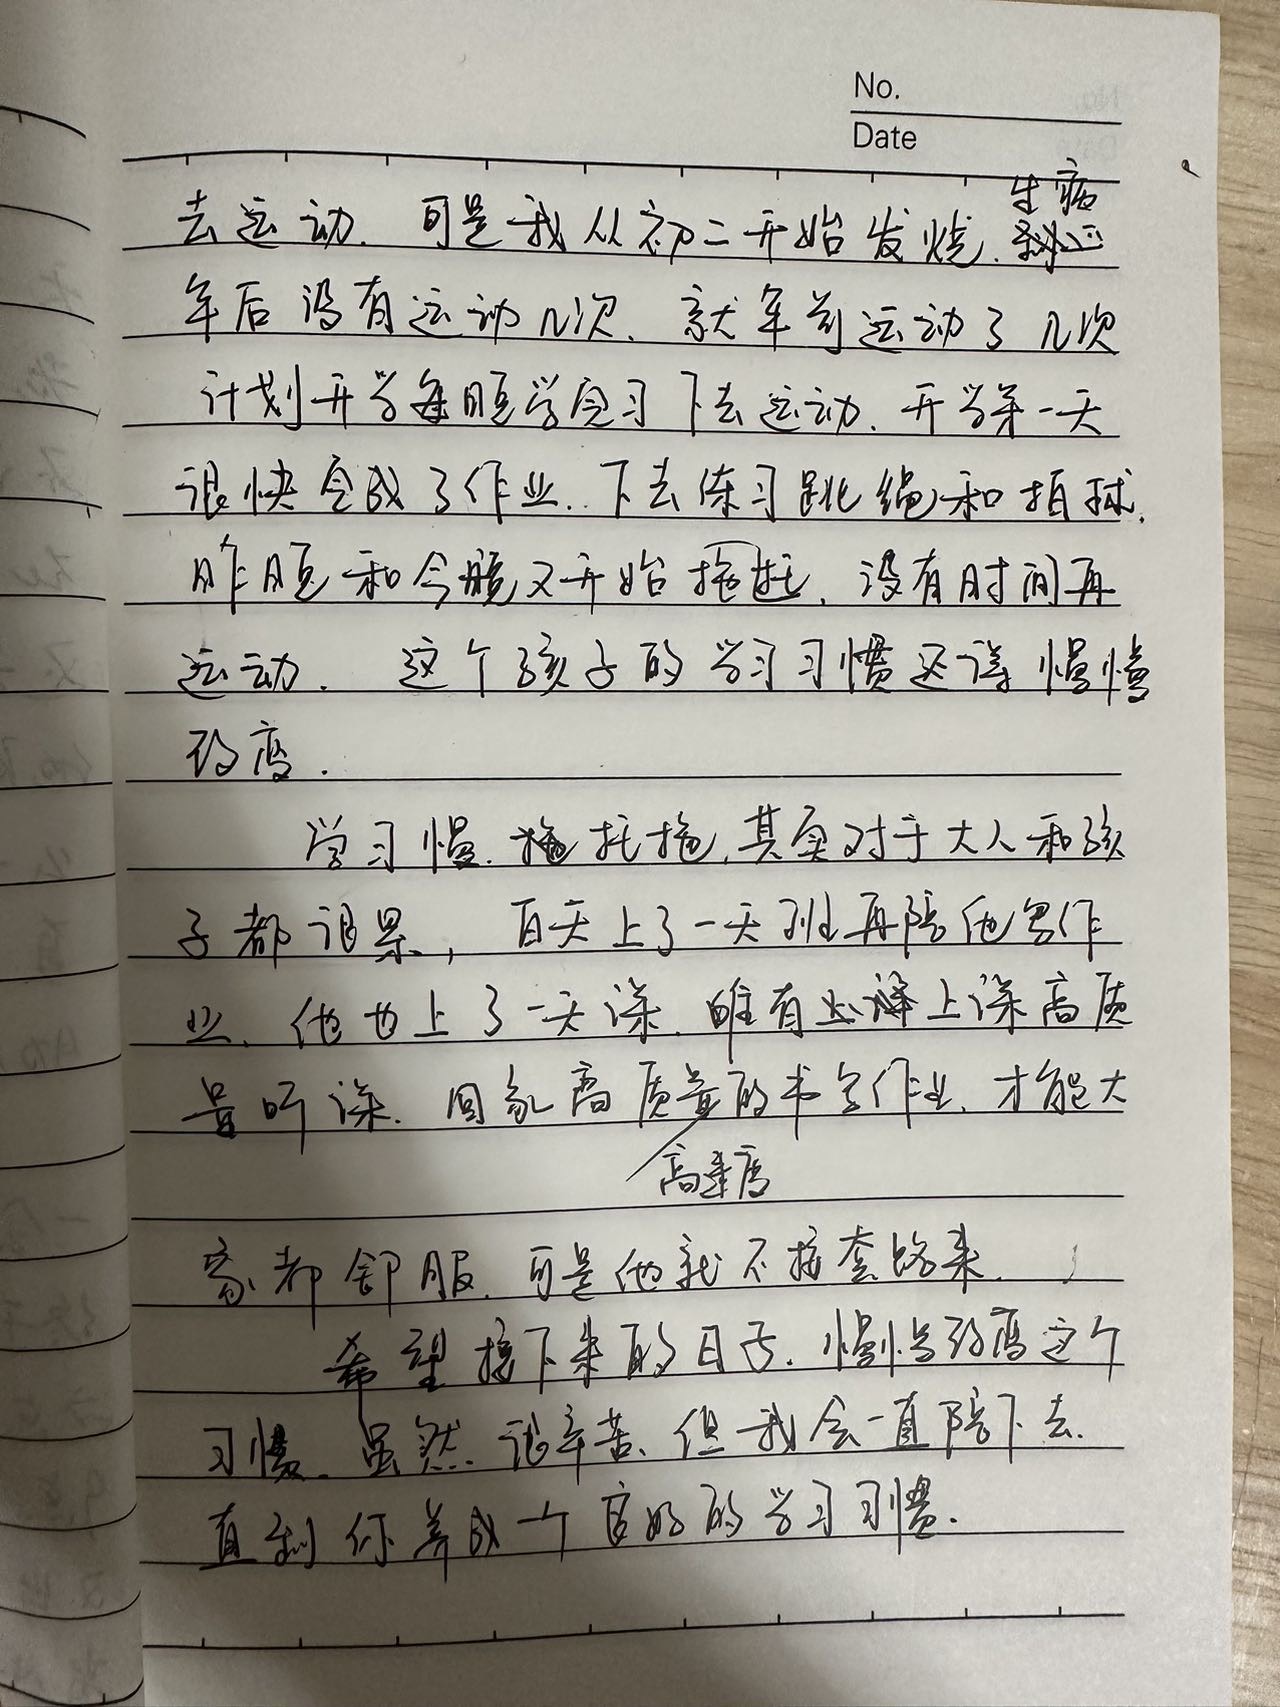 No.
Date
生病
去运动. 可是我从初二开始发烧.
年后没有运动几次. 就年前运动了几次
计划开学每晚学完习下去运动. 开学第一天
很快完成了作业. 下去练习跳绳和拍球.
昨晚和今晚又开始拖拖, 没有时间再
运动. 这个孩子的学习习惯还得慢慢
改变.
学习慢. 拖拖拖, 其实对于大人和孩
子都很累, 白天上了一天班再陪他写作
业. 他也上了一天课. 唯有 上课高质
量听课. 回家高质量的书写作业. 才能大
高速度
家都舒服. 可是他就不按套路来.
希望接下来的日子. 慢慢改变这个
习惯. 虽然很辛苦. 但我会一直陪下去.
直到你养成一个良好的学习习惯.